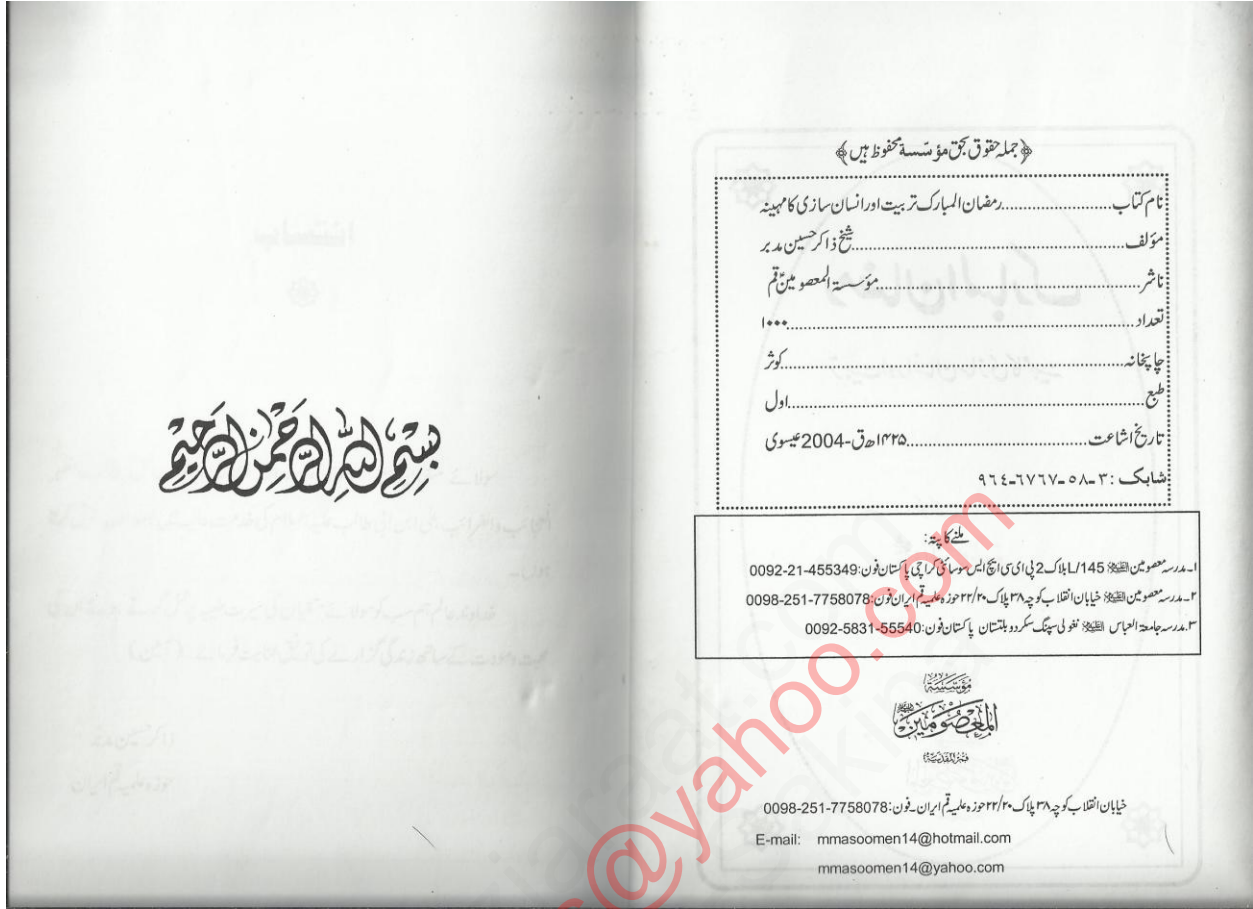 ﴿جملہ حقوق بحق مؤسّسۃ محفوظ ہیں﴾
نام کتاب......................رمضان المبارک تربیت اور انسان سازی کا مہینہ
مؤلف......................شیخ ذاکر حسین مدبر
ناشر......................مؤسسۃ المعصومینؑ قم
تعداد......................۱۰۰۰
چاپخانہ......................کوثر
طبع......................اول
تاریخ اشاعت......................۱۴۲۵ھ ق-2004 عیسوی
شابک : ۳-۵۸-٦٧٦٧-٩٦٤
ملنے کا پتہ:
۱۔ مدرسہ معصومین علیہم السلام 145/L بلاک 2 پی ای سی ایچ ایس سوسائٹی کراچی پاکستان فون: 0092-21-455349
۲۔ مدرسہ معصومین علیہم السلام خیابان انقلاب کوچہ ۳۸ پلاک ۲۲/۲۰ حوزہ علمیہ قم ایران فون: 0098-251-7758078
۳. مدرسہ جامعۃ العباس علیہ السلام نغولی سپنگ سکردو بلتستان پاکستان فون: 0092-5831-55540
مؤسسة
المعصومين
قم المقدسة
خیابان انقلاب کوچہ ۳۸ پلاک ۲۲/۲۰ حوزہ علمیہ قم ایران۔ فون: 0098-251-7758078
E-mail: mmasoomen14@hotmail.com
mmasoomen14@yahoo.com
بسم الله الرحمن الرحيم
@yahoo.com